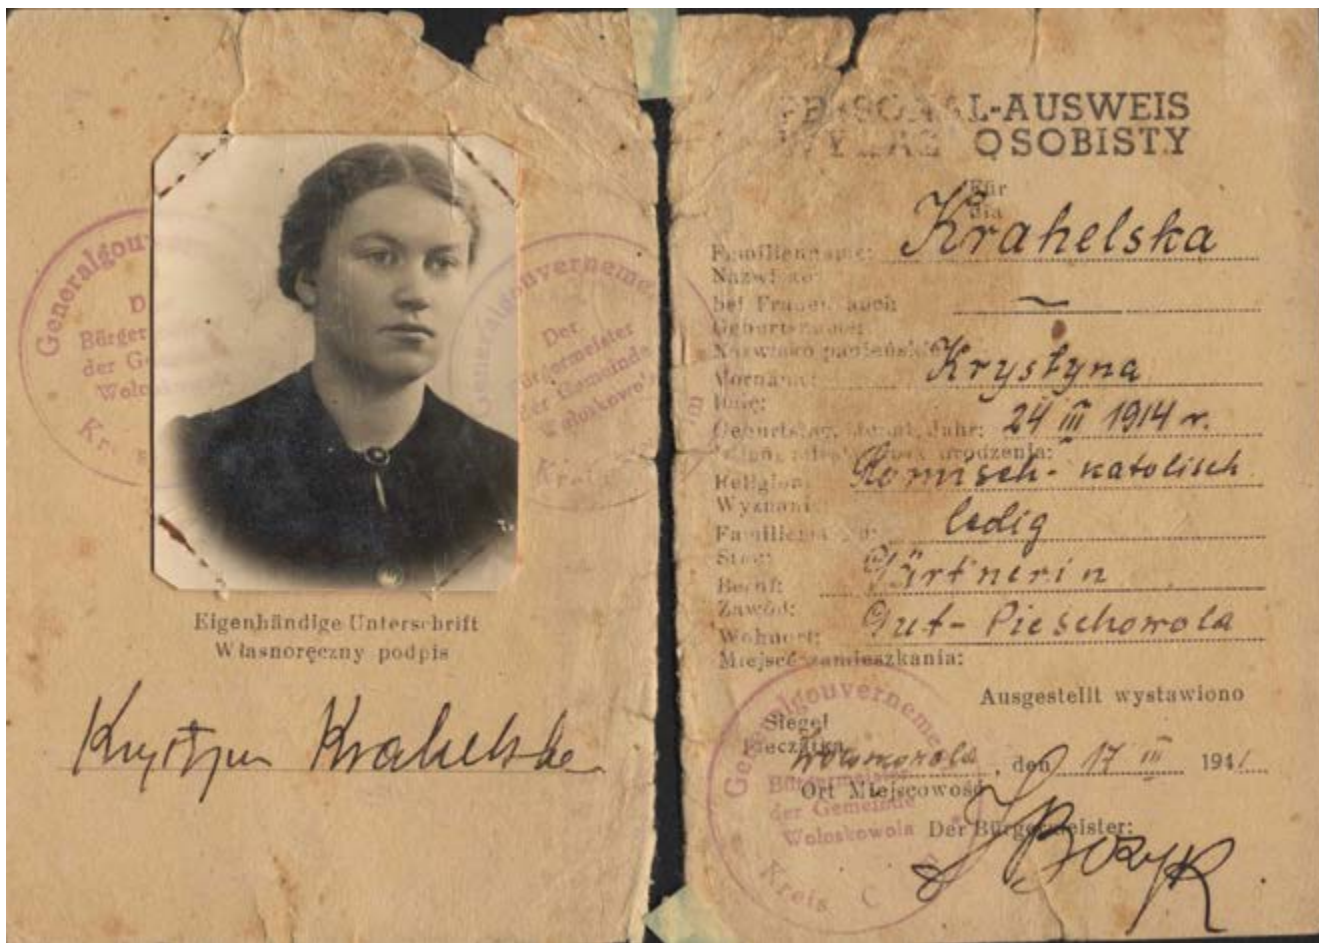 Generalgouver
Bürger
der G
Kr
Generalgouverneme
Der
Bürgermeister
der Gemeinde
Woloskowo
Kreis
Eigenhändige Unterschrift
Własnoręczny podpis
Krystyna Krahelska
PERSONAL-AUSWEIS
WYKAZ OSOBISTY
Für
dla
Familienname: Krahelska
Nazwisko
bei Frauen auch —
Geburtsname:
Nazwisko panieńskie
Vorname: Krystyna
Imię:
Geburtstag, Monat, Jahr: 24 III 1914 r.
urodzenia:
Religion: Römisch-katolisch
Wyznanie
Familienstand: ledig
Stan:
Beruf: Gärtnerin
Zawód:
Wohnort: Gut-Pieschowola
Miejsce zamieszkania:
Ausgestellt wystawiono
Siegel
Pieczątka
, den 17 III 1941
Ort Miejscowość
Der Bürgermeister:
Generalgouverneme
Bürgermeister
der Gemeinde
Woloskowola
Kreis C